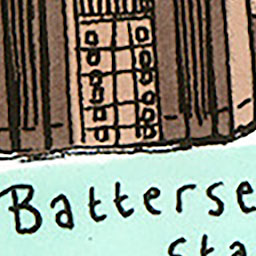 Batterse
Sta